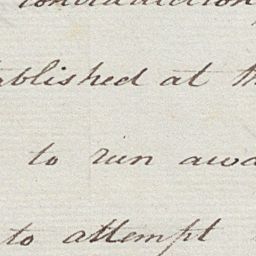 contradiction
ablished at th
to run awa
to attempt